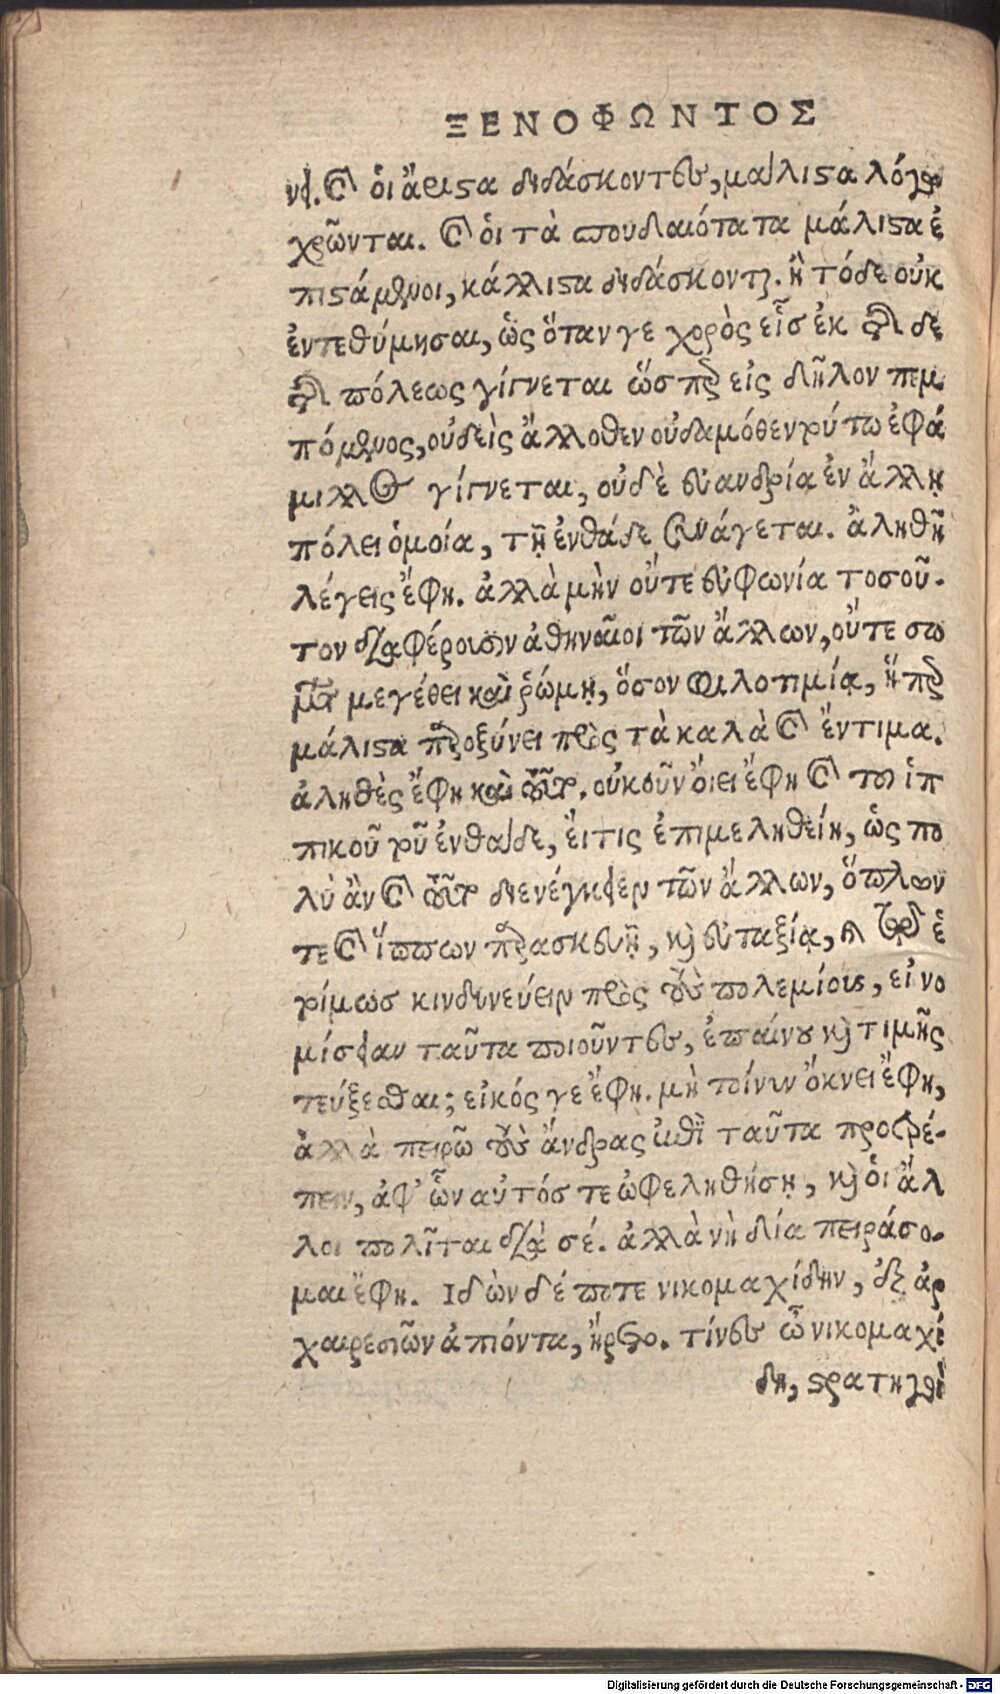 ΞΕΝΟΦΩΝΤΟΣ
νει. καὶ ὁι ἄριστα διδάσκοντες, μάλιστα λόγῳ
χρῶνται. καὶ ὁι τὰ σπουδαιότατα μάλιστα ἐ
πιστάμενοι, κάλλιστα διδάσκονται. ἢ τόδε οὐκ
ἐντεθύμησαι, ὡς ὅταν γε χορὸς εἷσ ἐκ τῆσδε
τῆς πόλεως γίγνεται ὥσπερ εἰς δῆλον πεμ
πόμενος, οὐδεὶς ἄλλοθεν οὐδαμόθεν τούτῳ ἐφά
μιλλος γίγνεται, οὐδὲ εὐανδρία ἐν ἄλλῃ
πόλει ὁμοία, τῇ ἐνθάδε συνάγεται. ἀληθῆ
λέγεις ἔφη. ἀλλὰ μὴν οὔτε εὐφωνία τοσοῦ-
τον διαφέρουσιν ἀθηναῖοι τῶν ἄλλων, οὔτε σω
μάτων μεγέθει καὶ ῥώμῃ, ὅσον φιλοτιμίᾳ, ἥπερ
μάλιστα παροξύνει πρὸς τὰ καλὰ καὶ ἔντιμα.
ἀληθὲς ἔφη καὶ τοῦτο. οὐκοῦν ὄιει ἔφη καὶ του ἱπ
πικοῦ τοῦ ἐνθάδε, ἔιτις ἐπιμεληθείη, ὡς πο
λὺ ἂν καὶ τοῦτο διενέγκειεν τῶν ἄλλων, ὅπλων
τε καὶ ἵππων παρασκευῇ, καὶ εὐταξίᾳ, καὶ τῷ ἑ
τοίμως κινδυνεύειν πρὸς τοὺς πολεμίους, εἰ νο
μίσειαν ταῦτα ποιοῦντες, ἐπαίνου καὶ τιμῆς
τεύξεσθαι; εἰκός γε ἔφη. μὴ τοίνυν ὄκνει ἔφη,
ἀλλὰ πειρῶ τοὺς ἄνδρας ἐπὶ ταῦτα προτρέ-
πειν, ἀφ' ὧν αὐτός τε ὠφεληθήσῃ, καὶ ὁι ἄλ
λοι πολῖται διὰ σέ. ἀλλὰ νὴ δία πειράσο-
μαι ἔφη. Ιδὼν δέ ποτε νικομαχίδην, ἐξ ἀρ
χαιρεσιῶν ἀπιόντα, ἤρετο. τίνες ὦ νικομαχί
δη, στρατηγοὶ